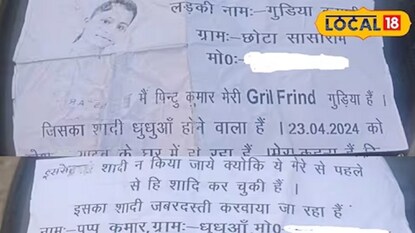 लड़की नाम:-गुडिया
NEWS 18
LOCAL 18
ग्राम:-छोटा सासाराम
मो0:-
मैं पिन्टु कुमार मेरी Gril Frind गुड़िया हैं ।
जिसका शादी धुधुआँ होने वाला हैं । 23.04.2024 को
के घर में हो रहा हैं
शादी न किया जाये क्योकि ये मेरे से पहले
से हि शादि कर चुकी हैं ।
इसका शादी जबरदस्ती करवाया जा रहा हैं
नाम:-पप्पु कुमार,ग्राम:-धुधुआँ मो0:-